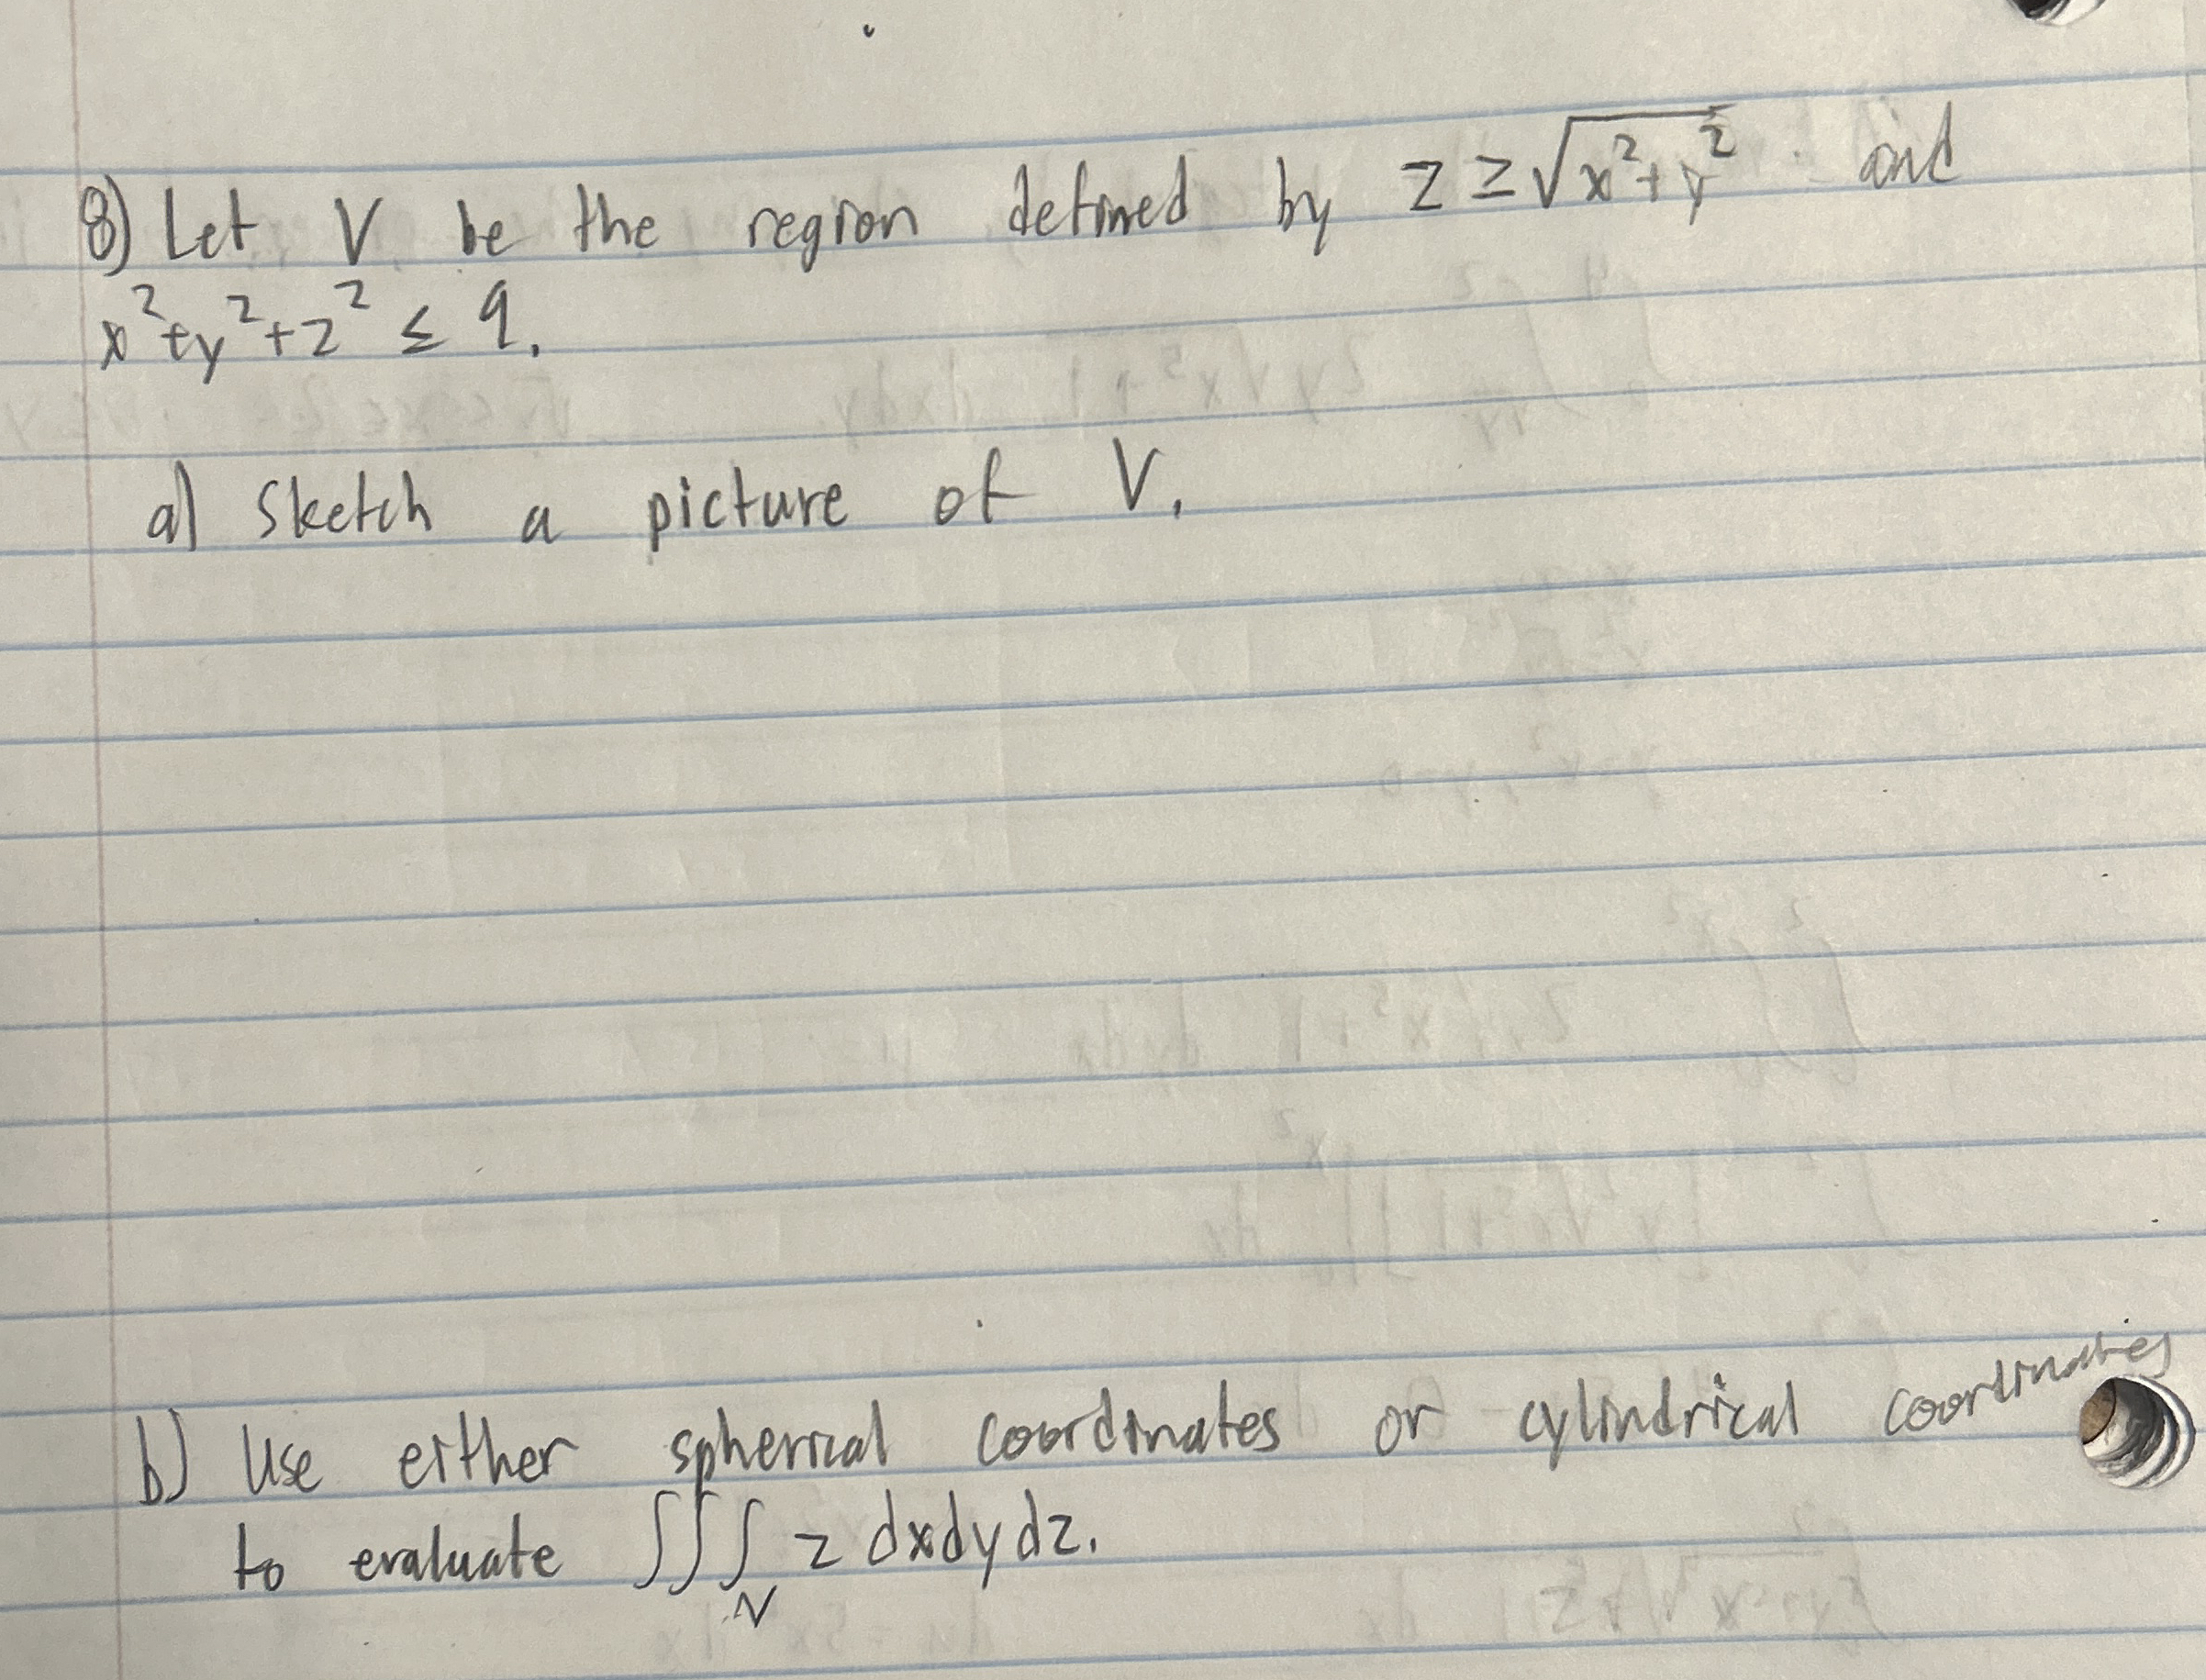 8) Let V be the region defined by z ≥ √(x²+y²) and
x²+y²+z² ≤ 9.
a) Sketch a picture of V.
b) Use either spherical coordinates or cylindrical coordinates
to evaluate ∭_V z dxdydz.